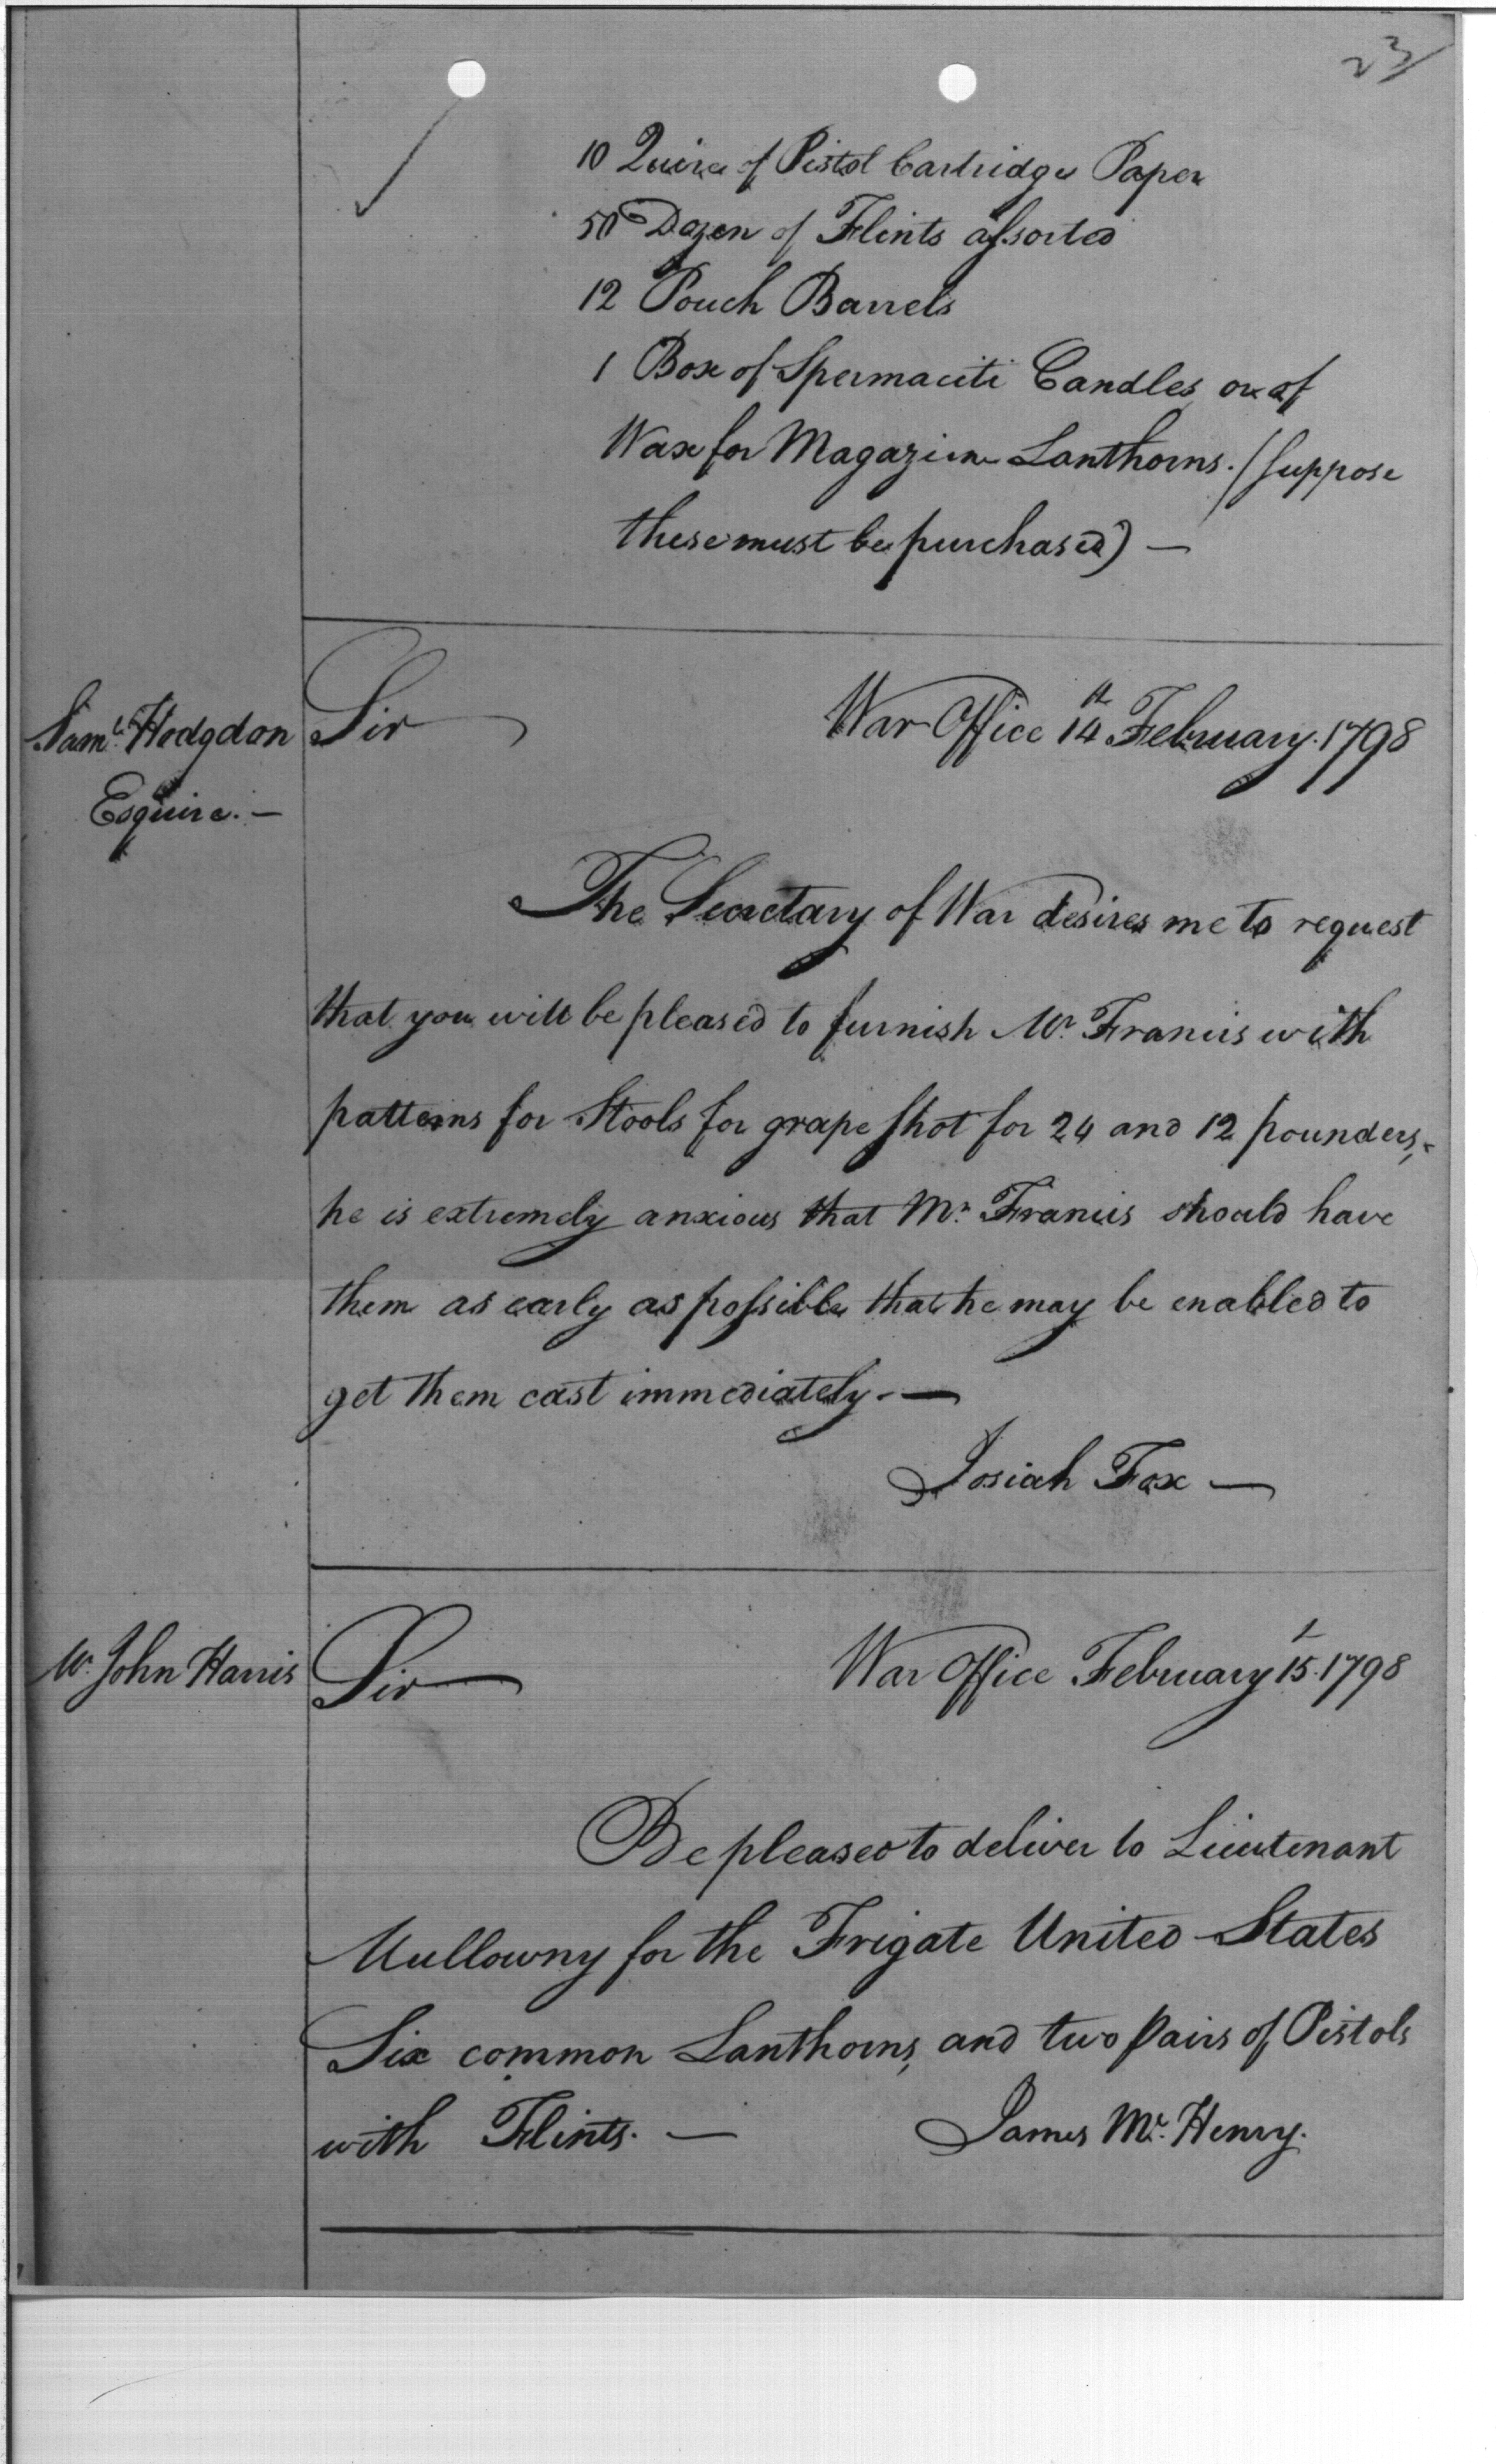 23
10 Quire of Pistol Cartridge Paper
50 Dozen of Flints assorted
12 Pouch Barrels
1 Box of Spermaciti Candles or of
Wax for Magazine Lanthorns. (Suppose
these must be purchased) —
Saml. Hodgdon
Esquire. —
Sir
War Office 14th February. 1798
The Secretary of War desires me to request
that you will be pleased to furnish Mr. Francis with
patterns for Stools for grape shot for 24 and 12 pounders, -
he is extremely anxious that Mr. Francis should have
them as early as possible that he may be enabled to
get them cast immediately. —
Josiah Fox —
Mr. John Harris
Sir
War Office February 15. 1798
Be pleased to deliver to Lieutenant
Mullowny for the Frigate United States
Six common Lanthorns, and two pairs of Pistols
with Flints. —
James Mc. Henry.